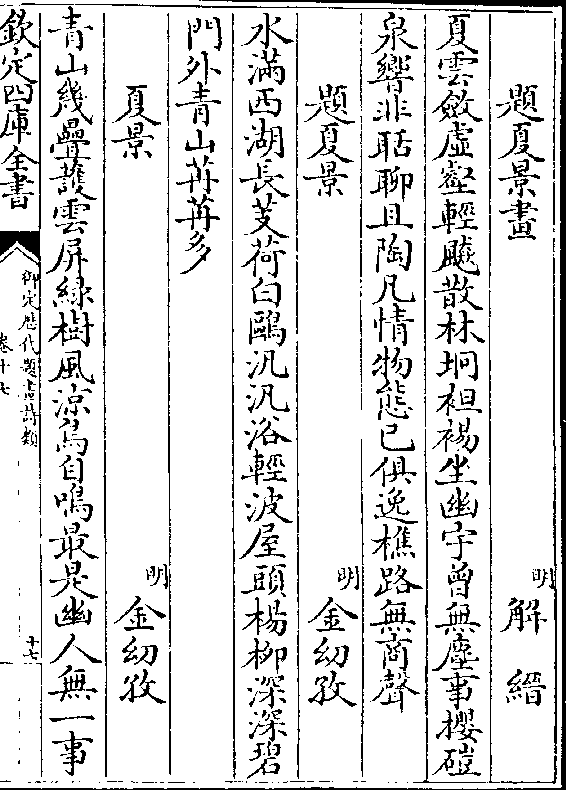 題夏景畫　明　解縉
夏雲斂虛壑輕飈散林坰袒裼坐幽宇曾無塵事櫻磑
泉響非聒聊且陶凡情物態已俱逸樵路無啇聲
題夏景　明　金幼孜
水滿西湖長芰荷白鷗汎汎浴輕波屋頭楊柳深深碧
門外青山苒苒多
夏景　明　金幼孜
青山幾疊護雲屏緑樹風凉鳥自鳴最是幽人無一事
欽定四庫全書
御定歷代題畫詩類
卷十七
十七